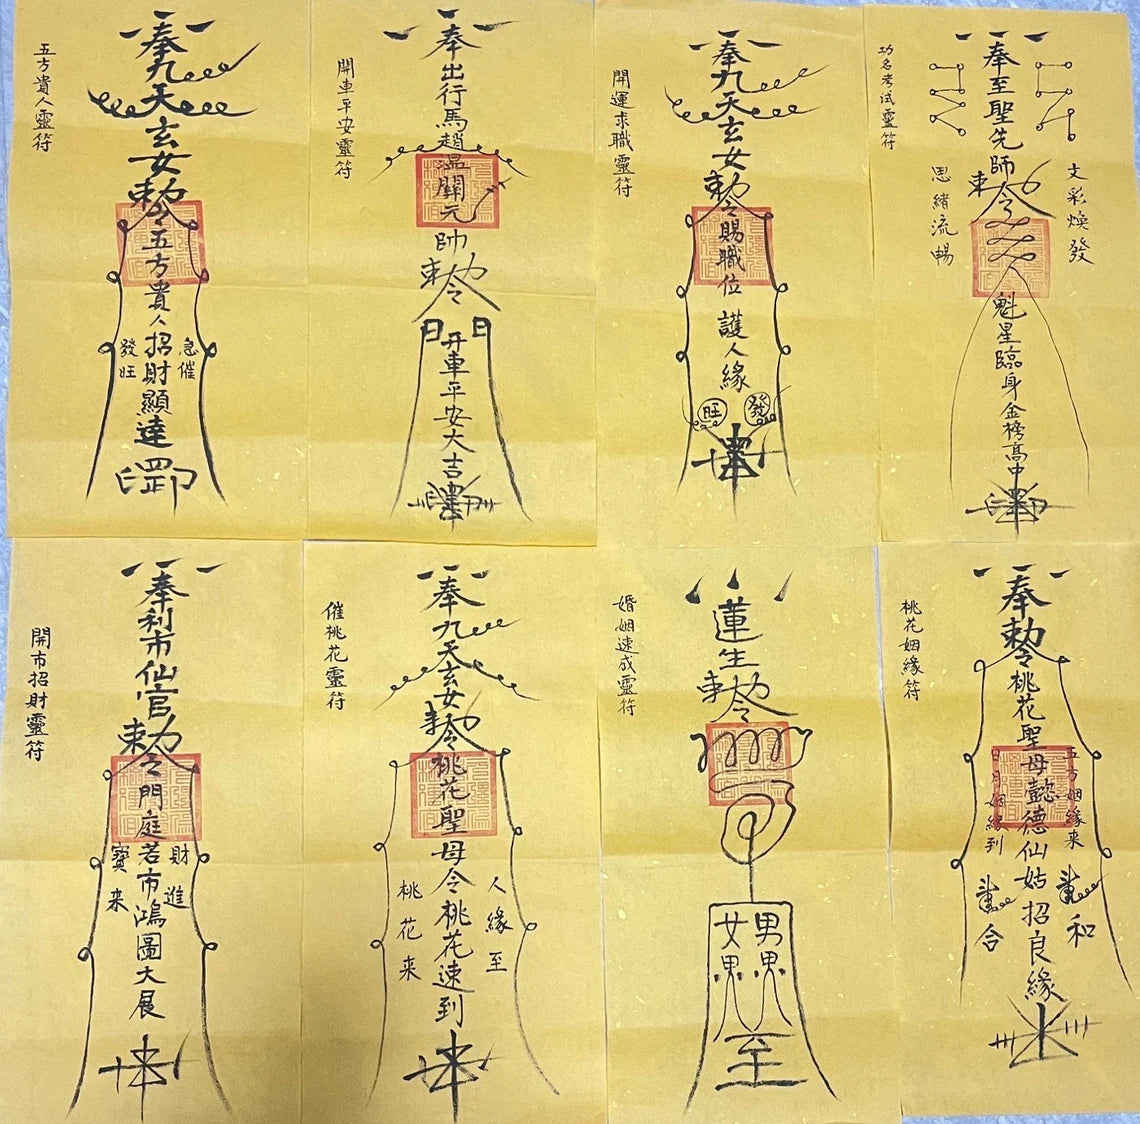 五方貴人靈符
奉九天玄女勅令五方貴人招財顯達
急催
發旺
罡印
開車平安靈符
奉出行馬趙溫關元帥勅令
日日
开車平安大吉
開運求職靈符
奉九天玄女勅令賜職位護人緣
發
旺
功名考试靈符
奉至聖先師勅令
文彩煥發
思緒流暢
魁星臨身金榜高中
開市招財靈符
奉利市仙官勅令門庭若市鴻圖大展
財進
寶来
催桃花靈符
奉九天玄女勅令桃花聖母令桃花速到
人緣至
桃花来
婚姻速成靈符
蓮生勅令
男
女
至
桃花姻緣符
奉勅令桃花聖母懿德仙姑招良緣
五方姻緣来
日月姻緣到
和
合